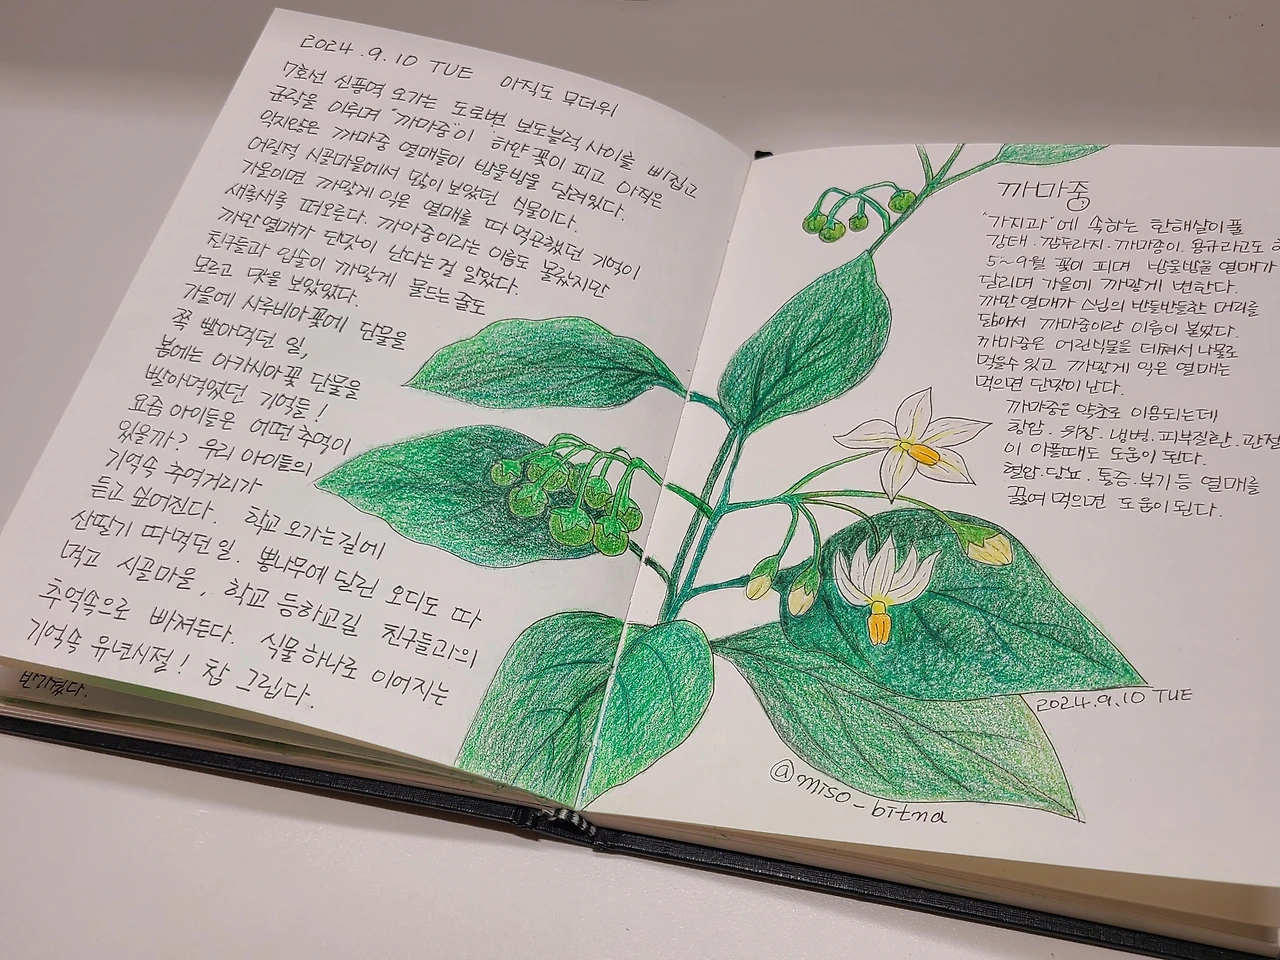 2024.9.10 TUE 아직도 무더위
7호선 신풍역 오가는 도로변 보도블럭 사이를 삐집고
군락을 이루며 "까마중"이 하얀 꽃이 피고 아직은
익지않은 까마중 열매들이 방울방울 달려있다.
어릴적 시골마을에서 많이 보았던 식물이다.
가을이면 까맣게 익은 열매를 따 먹곤했던 기억이
새록새록 떠오른다. 까마중이라는 이름도 몰랐지만
까만열매가 단맛이 난다는 걸 알았다.
친구들과 입술이 까맣게 물드는 줄도
모르고 맛을 보았었다.
가을에 사루비아꽃에 단물을
쪽 빨아먹던 일,
봄에는 아카시아꽃 단물을
빨아먹었던 기억들!
요즘 아이들은 어떤 추억이
있을까? 우리 아이들의
기억속 추억거리가
듣고 싶어진다. 학교 오가는길에
산딸기 따먹던 일. 뽕나무에 달린 오디도 따
먹고 시골마을, 학교 등하교길 친구들과의
추억속으로 빠져든다. 식물하나로 이어지는
기억속 유년시절! 참 그립다.
반가웠다.
까마중
"가지과"에 속하는 한해살이풀
강태·깜두라지·까마중이. 용규라고도
5~9월 꽃이 피며 방울방울 열매가
달리며 가을에 까맣게 변한다.
까만열매가 스님의 반들반들한 머리를
닮아서 까마중이란 이름이 붙었다.
까마중은 어린식물을 데쳐서 나물로
먹을수 있고 까맣게 익은 열매는
먹으면 단맛이 난다.
까마중은 약초로 이용되는데
항암. 위장. 냉병. 피부질환. 관절
이 아플때도 도움이 된다.
혈압·당뇨. 통증. 부기 등 열매를
끓여 먹으면 도움이 된다.
2024.9.10 TUE
@miso_bitna